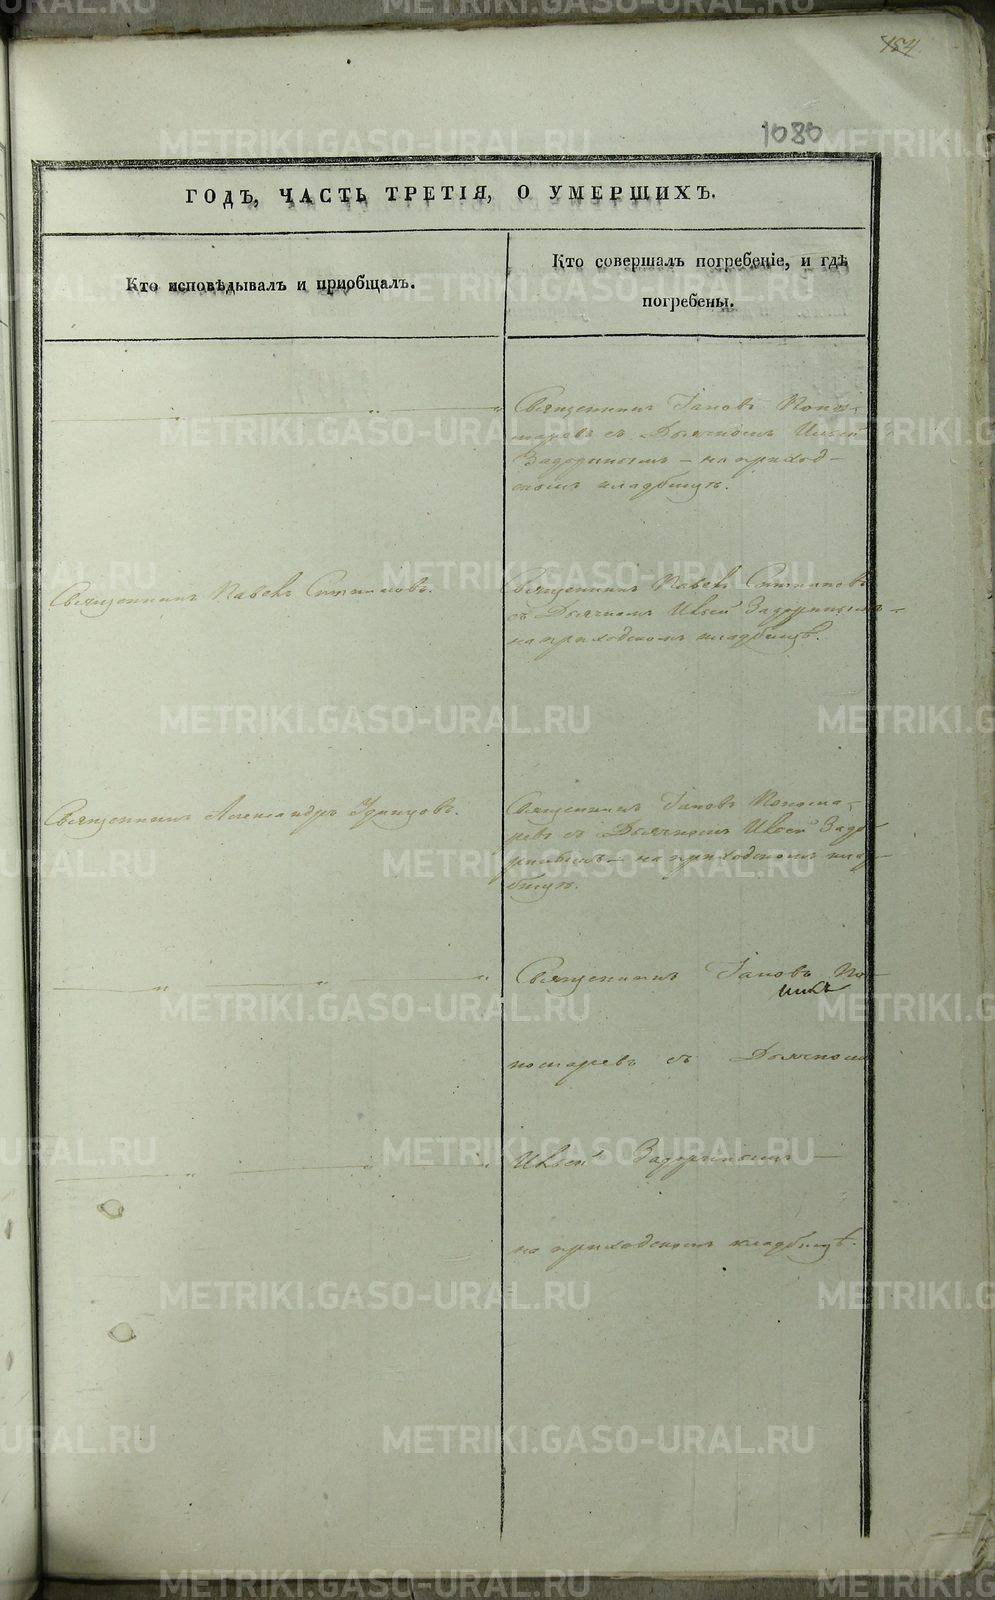 154
1080
ГОДЪ, ЧАСТЬ ТРЕТІЯ, О УМЕРШИХЪ.
Кто исповѣдывалъ и пріобщалъ.
Кто совершалъ погребеніе, и гдѣ
погребены.
Священникъ Іаковъ Поно-
маревъ съ Дьячкомъ
Задоринымъ – на приход-
скомъ кладбищѣ.
Священникъ Павелъ
Священникъ Павелъ
съ Дьячкомъ Задоринымъ –
на приходскомъ кладбищѣ.
Священникъ Александръ Удинцовъ.
Священникъ Іаковъ Понома-
ревъ съ Дьячкомъ Задо-
ринымъ – на приходскомъ клад-
бищѣ.
Священникъ Іаковъ По-
номаревъ съ Дьячкомъ
Задоринымъ –
на приходскомъ кладбищѣ.
METRIKI.GASO-URAL.RU